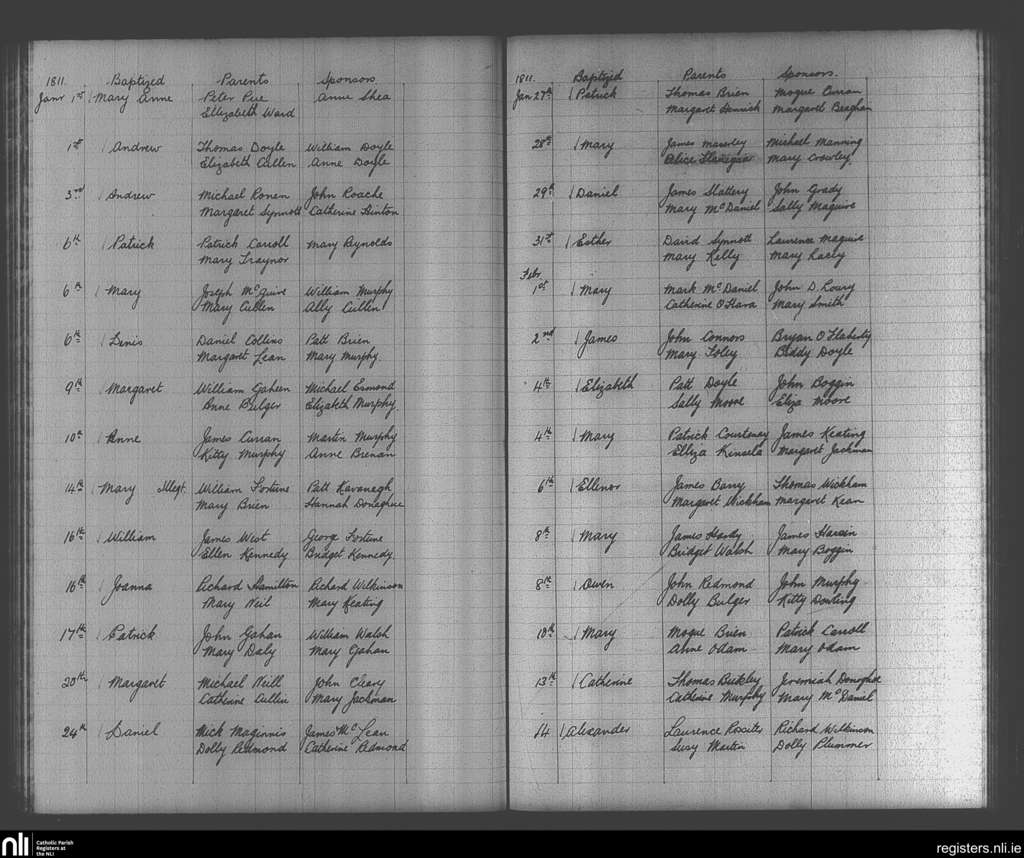 1811. Baptized Parents Sponsors.
Janr 1st Mary Anne Peter Pue Anne Shea
Ellizabeth Ward
1st Andrew Thomas Doyle William Doyle
Elizabeth Cullen Anne Doyle
3rd Andrew Michael Ronen John Roache
Margaret Synnott Catherine Hinton
6th Patrick Patrick Carroll Mary Reynolds
Mary Traynor
6th Mary Joseph McGuire William Murphy
Mary Cullen Ally Cullin
6th Dinis Daniel Collins Patt Brien
Margaret Lean Mary Murphy.
9th Margaret William Gaheen Michael Esmond
Anne Bulger Elizabeth Murphy.
10th Anne James Curran Martin Murphy
Kitty Murphy Anne Brenan
14th Mary Illegt. William Fortune Patt Kavanagh
Mary Brien Hannah Donaghue
16th William James West George Fortune
Ellen Kennedy Bridget Kennedy.
16th Joanna Richard Hamilton Richard Wilkinson
Mary Neil Mary Keating
17th Patrick John Gahan William Walsh
Mary Daly Mary Gahan
20th Margaret Michael Neill John Cleary
Catherine Cullin Mary Jackman
24th Daniel Mick Maginnis James McLean
Dolly Redmond Catherine Redmond
1811. Baptized Parents Sponsors.
Jan 27th Patrick Thomas Brien Mogue Curran
Margaret Henrick Margaret Beaghan
28th Mary James Michael Manning
Alice Flanagan Mary Crowley.
29th Daniel James Slattery John Grady
Mary McDaniel Sally Maguire
31st Esther David Synnott Laurence Maguire
Mary Kelly Mary Lacey
Febr
1st Mary Mark McDaniel John D. Loury
Catherine O'Hara Mary Smith
2nd James John Connors Bryan O'Flaherty
Mary Foley Biddy Doyle
4th Elizabeth Patt Doyle John Boggin
Sally Moore Eliza Moore
4th Mary Patrick Courteney James Keating
Elliza Kinsela Margaret Jackman
6th Ellinor James Barry Thomas Wickham
Margaret Wickham Margaret Kean
8th Mary James Hardy James
Bridget Walsh Mary Boggin
8th Owen John Redmond John Murphy.
Dolly Bulger Kitty Donting
10th Mary Mogue Brien Patrick Carroll
Anne Odam Mary Odam
13th Catherine Thomas Buckley Jeremiah Donoghoe
Catherine Murphy Mary McDaniel
14 Alexander Laurence Rositer Richard Wilkinson
Susy Martin Dolly Plummer
nli Catholic Parish
Registers at
the NLI
registers.nli.ie